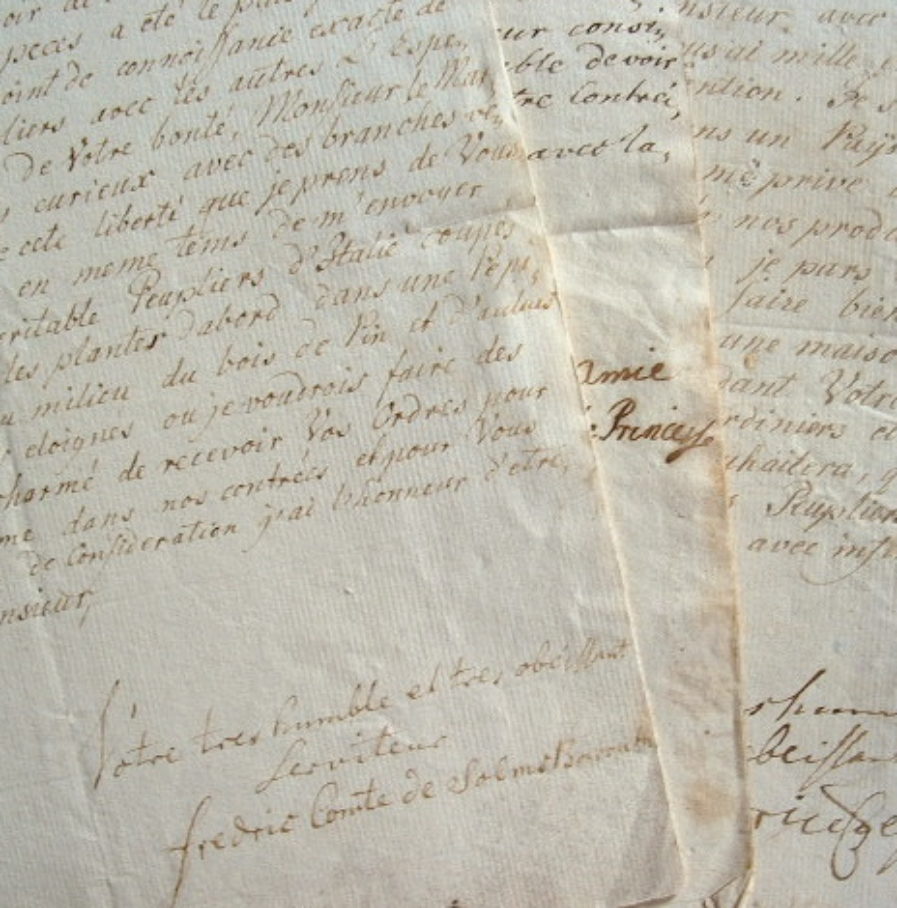 peces a été le plus
oint de connoissance exacte de
liers avec les autres L'Espe,
de Votre bonté, Monsieur le Mar
curieux avec des branches
cete liberté que je prens de Vous
en meme tems de m'envoyer
eritable Peupliers d'Italie coupés
les planter dabord dans une Pépi,
u milieu du bois de Pin et d'aulnes
eloignés ou je voudrois faire des
charmé de recevoir Vos Ordres pour
me dans nos contrées et pour Vous
de Consideration j'ai l'honneur d'etre,
nsieur,
Votre tres humble et tres obeissant
Serviteur
fredric Comte de Solms
ur consi,
ble devoir
tre Contrée,
avec la,
amie
Princesse
nsieur avec
us ai mille
ention. Je s
ns un Païs
me prive
nos produ
je pars
faire bien
une maiso
dant Votre
rdiniers et
uhaitera, q
Peuplier
avec
rhum
beissan